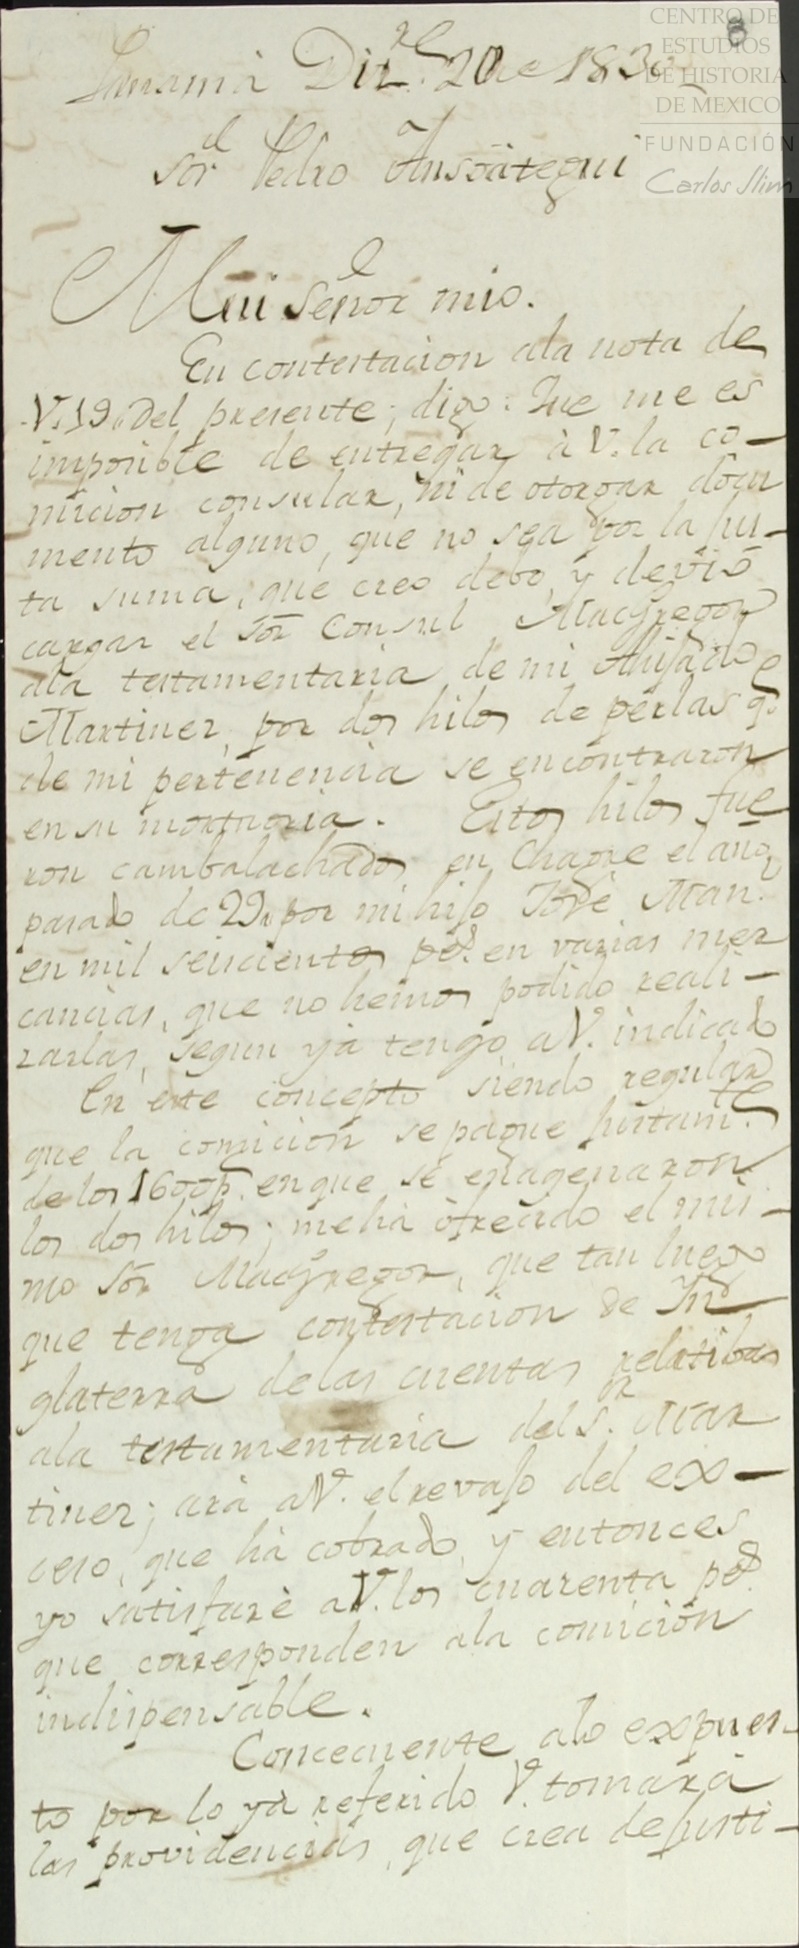 CENTRO DE
ESTUDIOS
DE HISTORIA
DE MEXICO
FUNDACIÓN
Carlos Slim
8
Panamá Dizre. 20 de 1830
Sor. Dl. Pedro Ansoátegui
Mui Señor mio.
En contestacion ala nota de
V. 19. del presente; digo: Que me es
imposible de entregar à V. la co-
micion consular, ni de otorgar docu
mento alguno, que no sea por la jus-
ta suma, que creo debo, y devió
cargar el Sor. Consul MacGregor
ala testamentaria de mi Ahijado
Martinez, por dos hilos de perlas qe.
de mi pertenencia se encontraron
en su mortuoria. Estos hilos fue
ron cambalachados en Chagre el año
pasado de 29, por mi hijo José Man.
en mil seiscientos ps. en varias mer
cancias, que no hemos podido reali-
zarlas, segun yà tengo a V. indicado
En este concepto siendo regular
que la comición se pague justamte.
de los 1600 p. en que se enagenaron
los dos hilos; me hà ofrecido el mis-
mo Sor. MacGregor, que tan luego
que tenga contestacion de In
glaterra de las cuentas relatibas
ala testamentaria del Sr. Mar
tinez; arà a V. el revajo del ex-
ceso, que hà cobrado, y entonces
yo satisfarè a V. los cuarenta ps.
que corresponden ala comición
indispensable.
Concecuente alo expues-
to por lo yà referido V. tomarà
las providencias, que crea de justi-